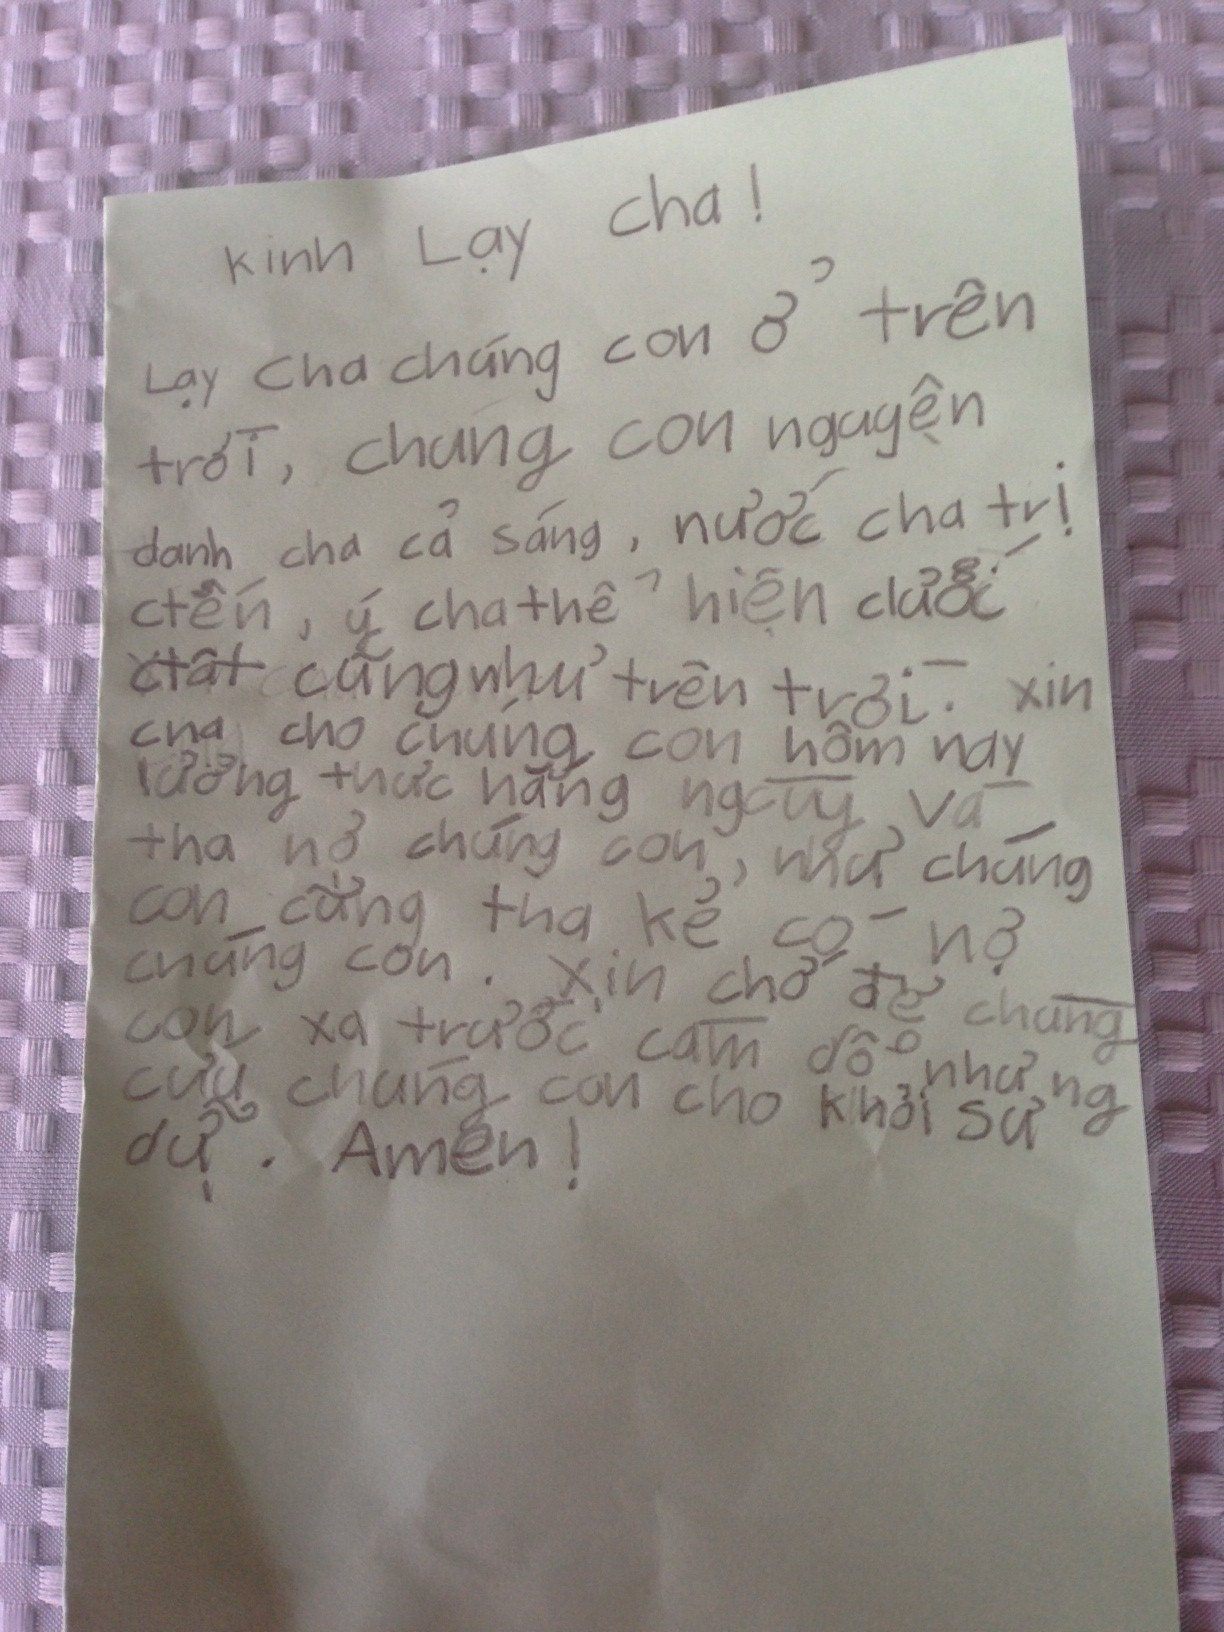 Kinh Lạy Cha!
Lạy Cha chúng con ở trên
trời, chúng con nguyện
danh cha cả sáng, nước cha trị
đến, ý cha thể hiện dưới
đất cũng như trên trời. xin
cha cho chúng con hôm nay
lương thực hằng ngày và
tha nợ chúng con, như chúng
con cũng tha kẻ có nợ
chúng con. Xin chớ để chúng
con xa trước cám dỗ nhưng
cứu chúng con cho khỏi sự
dữ. Amen!